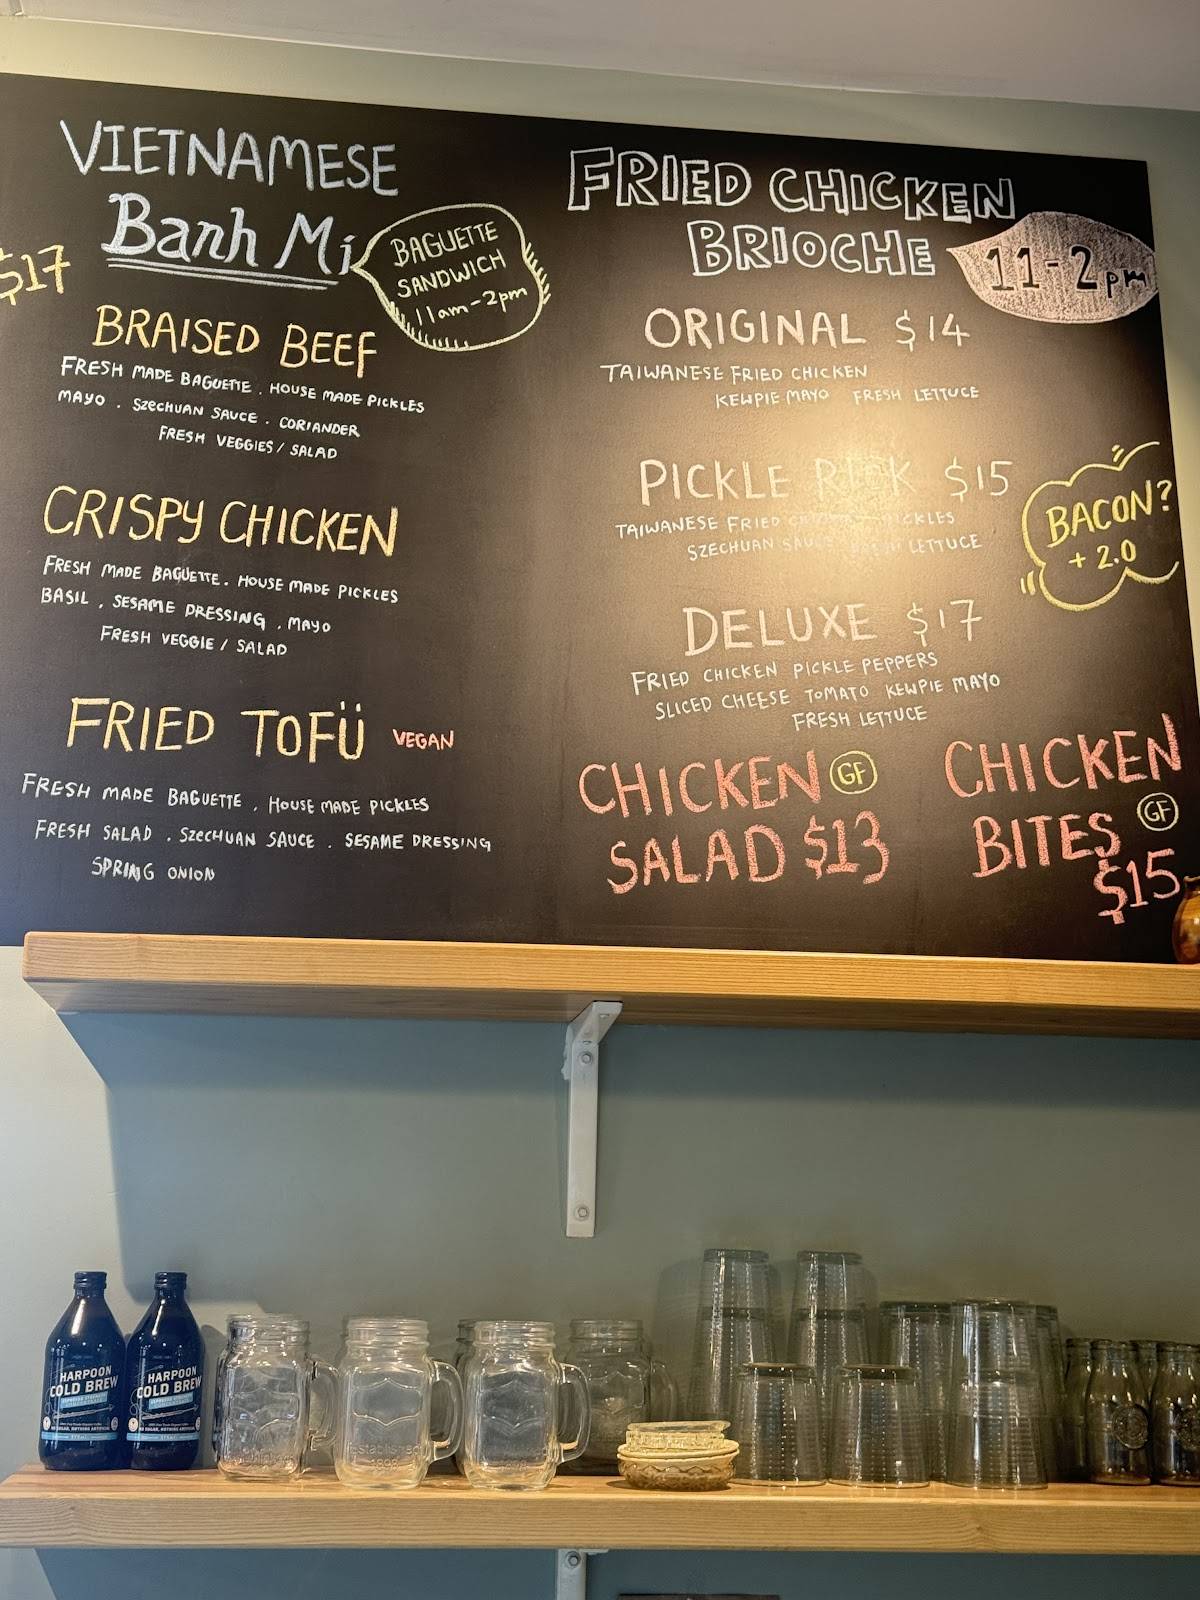 VIETNAMESE
Banh Mi
$17
BAGUETTE
SANDWICH
11am-2pm
BRAISED BEEF
FRESH MADE BAGUETTE . HOUSE MADE PICKLES
MAYO . SZECHUAN SAUCE . CORIANDER
FRESH VEGGIES / SALAD
CRISPY CHICKEN
FRESH MADE BAGUETTE . HOUSE MADE PICKLES
BASIL . SESAME DRESSING . MAYO
FRESH VEGGIE / SALAD
FRIED TOFÜ VEGAN
FRESH MADE BAGUETTE . HOUSE MADE PICKLES
FRESH SALAD . SZECHUAN SAUCE . SESAME DRESSING
SPRING ONION
FRIED CHICKEN
BRIOCHE
11-2pm
ORIGINAL $14
TAIWANESE FRIED CHICKEN
KEWPIE MAYO FRESH LETTUCE
PICKLE RICK $15
TAIWANESE FRIED CHICKEN PICKLES
SZECHUAN SAUCE FRESH LETTUCE
BACON?
+ 2.0
DELUXE $17
FRIED CHICKEN PICKLE PEPPERS
SLICED CHEESE TOMATO KEWPIE MAYO
FRESH LETTUCE
CHICKEN GF
SALAD $13
CHICKEN
BITES GF
$15
HARPOON
COLD BREW
HARPOON
COLD BREW
Established
1898